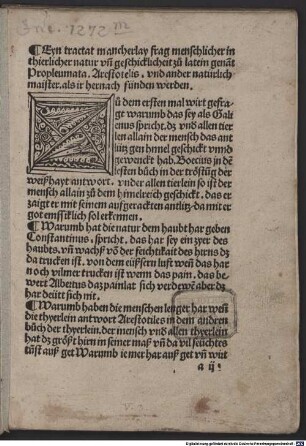 Inc. 1272 m
¶ Eyn tractat mancherlay frag menschlicher in
thierlicher natur vn̄ geschicklicheit zů latein genāt
Propleumata. Arestotelis. vnd ander natürlich
maister. als ir hernach fünden werden.
Zů dem ersten mal wirt gefra-
ge warumb das sey als Gali
enus spricht. dz vnd allen tier
len allain der mensch das ant
litz gen hymel geschickt vnnd
gewenckt hab. Boecius in dē
lesten bůch in der tröstũg der
weißhayt antwort. vnder allen tierlein so ist der
mensch allain zů dem himelreich geschickt. das er
zaigt er mit seinem aufgeracktem antlitz. da mit er
got emssiklich sol erkennen.
¶ Warumb hat die natur dem haubt har geben
Constantinus. spricht. das har sey ein zyer des
haubts. vn̄ wachß vō der feichtikait des hirns dz
da trucken ist. von dem eüssern luft wen̄ das har
noch vilmer trucken ist wenn das pain. das be-
wert Albertus dz painlat sich verdewē aber dz
har deütt sich nit.
¶ Warumb haben die menschen lenger har wen̄
die thyerlein antwort Arestotiles in dem andren
bůch der thyerlein. der mensch vnd allen thyerlein
hat dz größt hirn in seiner maß vn̄ da vil feüchtes
tũst auß get Warumb ie mer har auß get vn̄ wirt
a ij